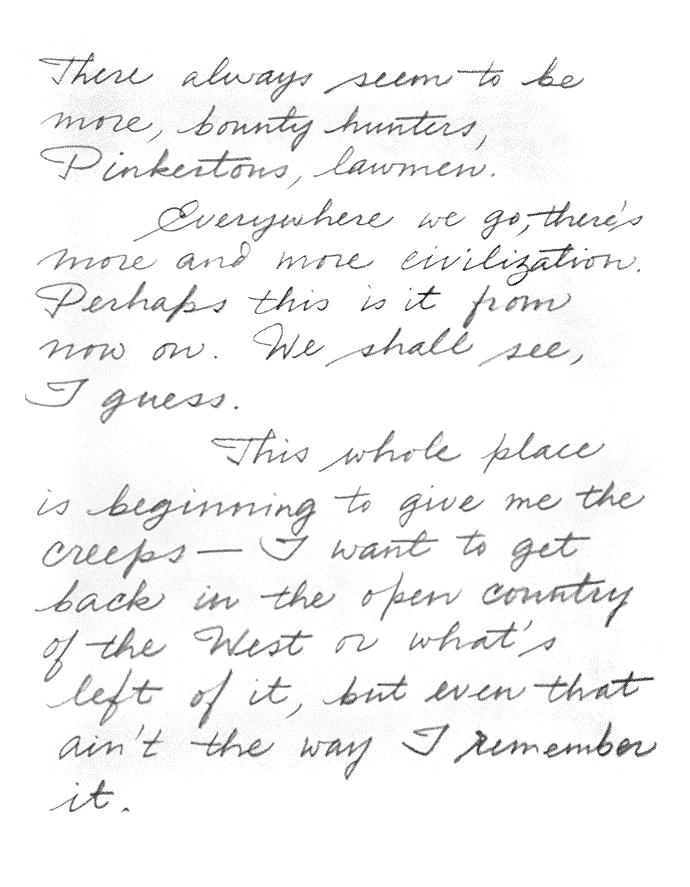 There always seem to be
more, bounty hunters,
Pinkertons, lawmen.
Everywhere we go, there's
more and more civilization.
Perhaps this is it from
now on. We shall see,
I guess.
This whole place
is beginning to give me the
creeps — I want to get
back in the open country
of the West or what's
left of it, but even that
ain't the way I remember
it.